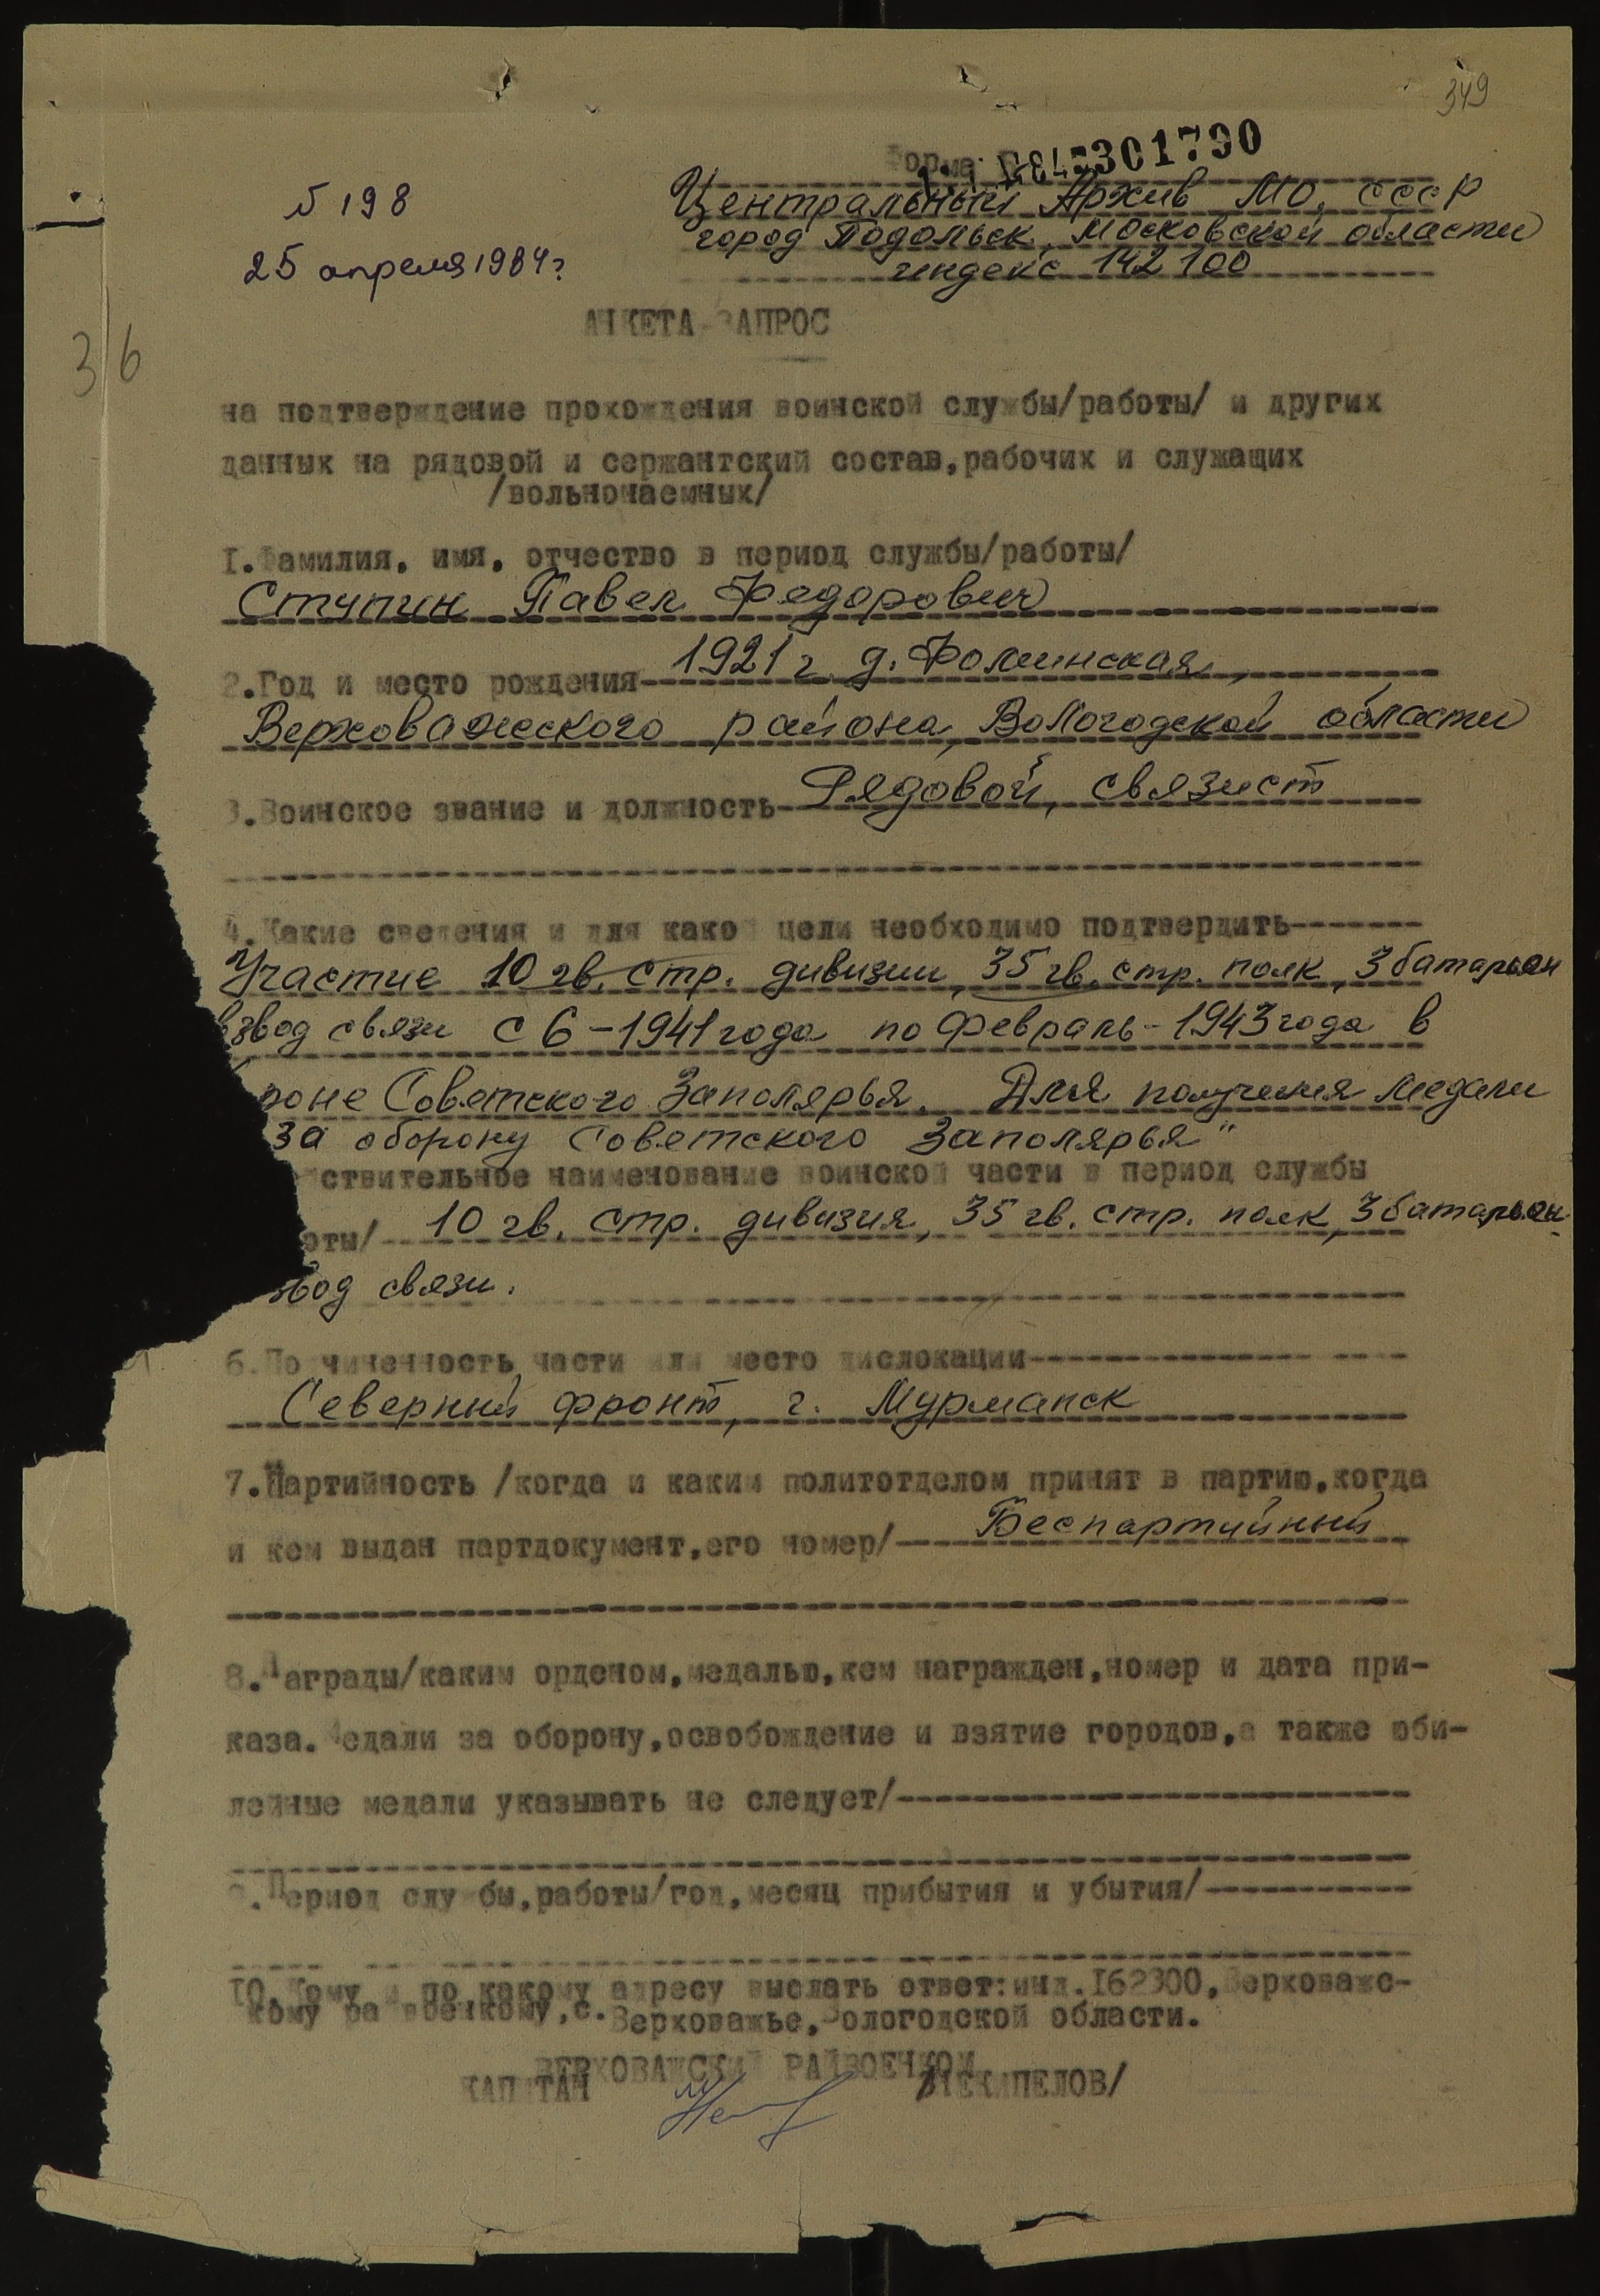 349
Форма
301790
N 198
Центральный Архив МО, СССР
город Подольск, Московской области
25 апреля 1984г
индекс 142100
АНКЕТА-ЗАПРОС
36
на подтверждение прохождения воинской службы/работы/ и других
данных на рядовой и сержантский состав,рабочих и служащих
/вольнонаемных/
I.Фамилия, имя, отчество в период службы/работы/
Ступин Павел Федорович
2.Год и место рождения 1921 г. д. Фоминская,
Верховажского района, Вологодской области
3.Воинское звание и должность Рядовой, связист
4.Какие сведения и для какой цели необходимо подтвердить
Участие 10 гв. стр. дивизии, 35 гв. стр. полк, 3 батальон
взвод связи с 6-1941 года по февраль-1943 года в
роне Советского Заполярья. Для получения медали
за оборону Советского Заполярья"
ствительное наименование воинской части в период службы
оты/ 10 гв. стр. дивизия, 35 гв. стр. полк, 3 батальон
звод связи.
6.Подчиненность части или место дислокации
Северный фронт, г. Мурманск
7.Партийность /когда и каким политотделом принят в партию,когда
и кем выдан партдокумент,его номер/ Беспартийный
8.Награды/каким орденом,медалью,кем награжден,номер и дата при-
каза. Медали за оборону,освобождение и взятие городов,а также юби-
лейные медали указывать не следует/
9.Период службы,работы/год,месяц прибытия и убытия/
10.Кому и по какому адресу выслать ответ:инд.I62300,Верховажс-
кому райвоенкому,с.Верховажье,Вологодской области.
ВЕРХОВАЖСКИЙ РАЙВОЕНКОМ
КАПИТАН /ЧЕКАПЕЛОВ/